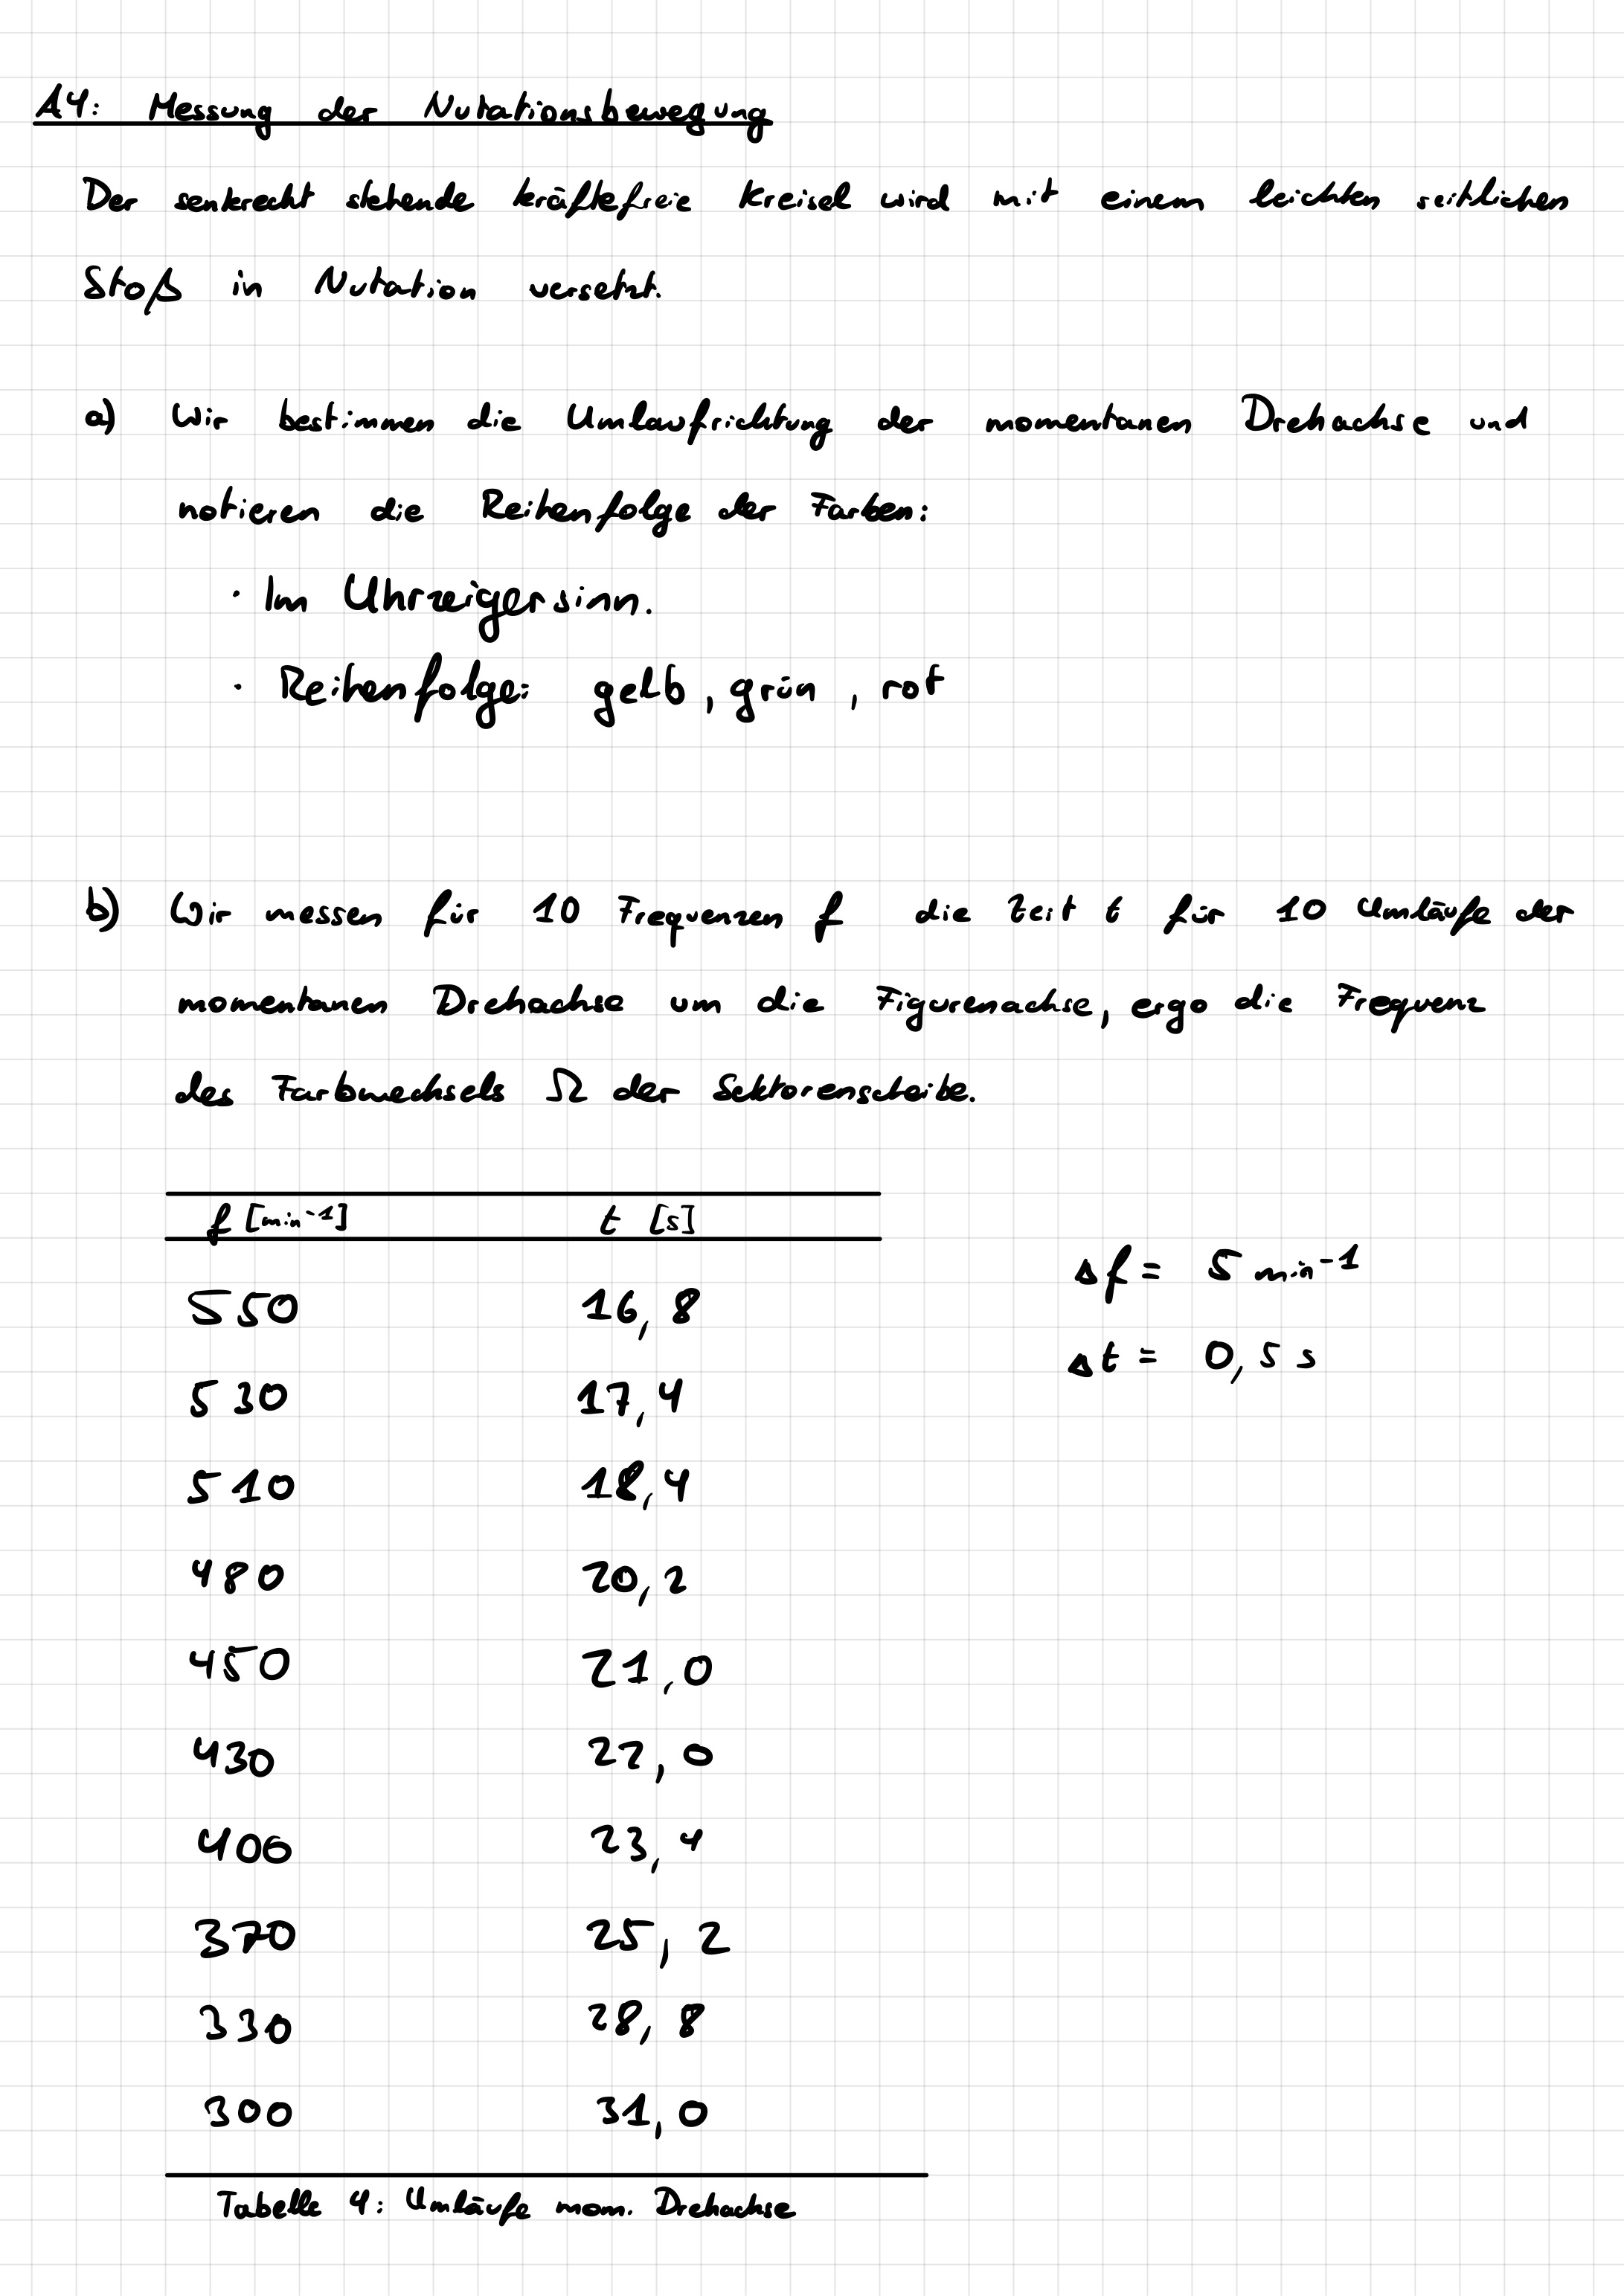 A4: Messung der Nutationsbewegung
Der senkrecht stehende kräftefreie Kreisel wird mit einem leichten seitlichen
Stoß in Nutation versetzt.
a) Wir bestimmen die Umlaufrichtung der momentanen Drehachse und
notieren die Reihenfolge der Farben:
· Im Uhrzeigersinn.
· Reihenfolge: gelb, grün, rot
b) Wir messen für 10 Frequenzen f die Zeit t für 10 Umläufe der
momentanen Drehachse um die Figurenachse, ergo die Frequenz
des Farbwechsels Ω der Sektorenscheibe.
f [min⁻¹] t [s]
Δf = 5 min⁻¹
550 16,8
Δt = 0,5 s
530 17,4
510 18,4
480 20,2
450 21,0
430 22,0
400 23,4
370 25,2
330 28,8
300 31,0
Tabelle 4: Umläufe mom. Drehachse